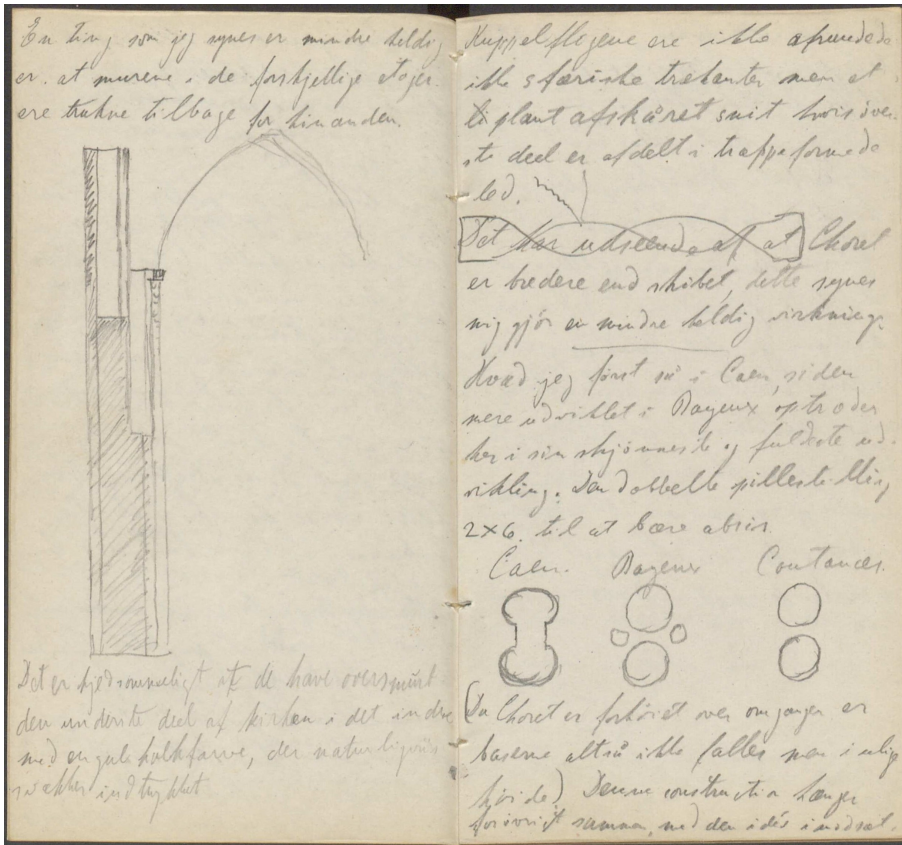 En ting som jeg synes er mindre heldig
er at murene i de forskjellige Etager
ere trukne tilbage for hinanden.
Det er kjedsommeligt at de have oversmurt
den underste deel af kirken i det indre
med en gule kalkfarve, der naturligviis
svækker indtrykket
Kuppelfligene ere ikke afrundede
ikke sfæriske trekanter men et
plant afskåret snit hvis øver-
ste deel er afdelt i trappeformede
led.
Det har udseende af at Choret
er bredere end skibet, dette synes
mig gjør en mindre heldig virkning.
Hvad jeg først så i Caen, siden
mere udviklet i Bayeux optræder
her i sin skjønneste og fuldeste ud-
vikling. Den dobbelte pillestilling
2×6. til at bære absis.
Caen. Bayeux Coutances.
(Da Choret er forhöiet over omgangen er
baserne altså ikke fælles men i ulige
höide) Denne construction hænger
forövrigt sammen med den idés